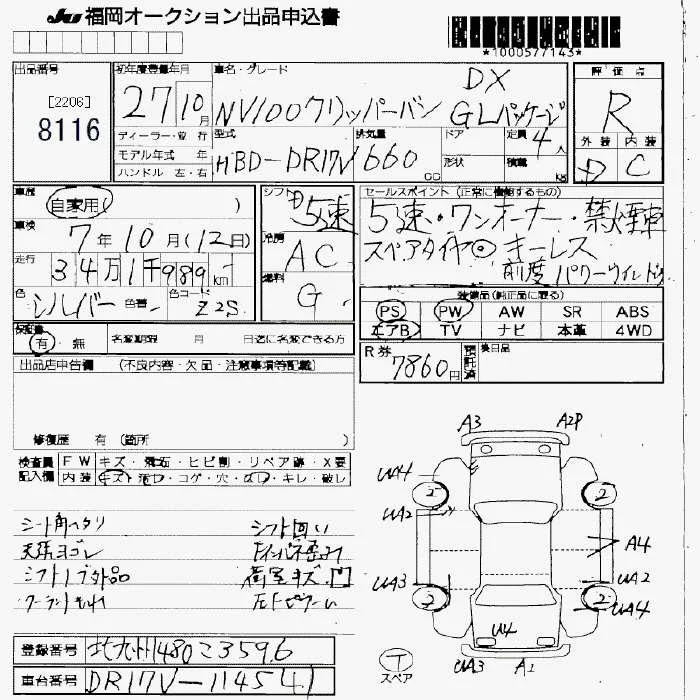 JU 福岡オークション出品申込書
*1000577143*
出品番号
[2206]
8116
初年度登録年月
27 10月
ディーラー・並 行
モデル年式 年
ハンドル 左・右
車名・グレード
DX
NV100クリッパーバン GLパッケージ
型式
HBD-DR17V
排気量
660 CC
ドア
形状
定員
4人
積載 kg
評価点
R
外装 内装
C
車歴
自家用( )
車検
7年 10月(12日)
走行
34万1千989 km
色
シルバー 色番
色コード
Z2S
シフト
5速
冷房
AC
燃料
G
セールスポイント (正常に機能するもの)
5速・ワンオーナー・禁煙車
スペアタイヤ◎ キーレス
前席 パワーウインドウ
装備品(純正品に限る)
PS PW AW SR ABS
エアB TV ナビ 本革 4WD
保証書
有・無
名変期限 月 日迄に名変できる方
R券
7860円
預託済
後日品
出品店申告欄 (不良内容・欠品・注意事項等記載)
修復歴 有 (箇所 )
検査員
記入欄
FW キズ・飛石・ヒビ割・リペア跡・X要
内装 キズ・汚れ・コゲ・穴・ハゲ・キレ・破レ
シート角ヘタリ
シフト固い
天張ヨゴレ
荷室キズ・凹
A3 A2P
UA4
2 2
UA2
A4
UA3 UA2
2 2
UA4
U4
UA3 A1
T
スペア
登録番号 北九州480こ3596
車台番号 DR17V-114541